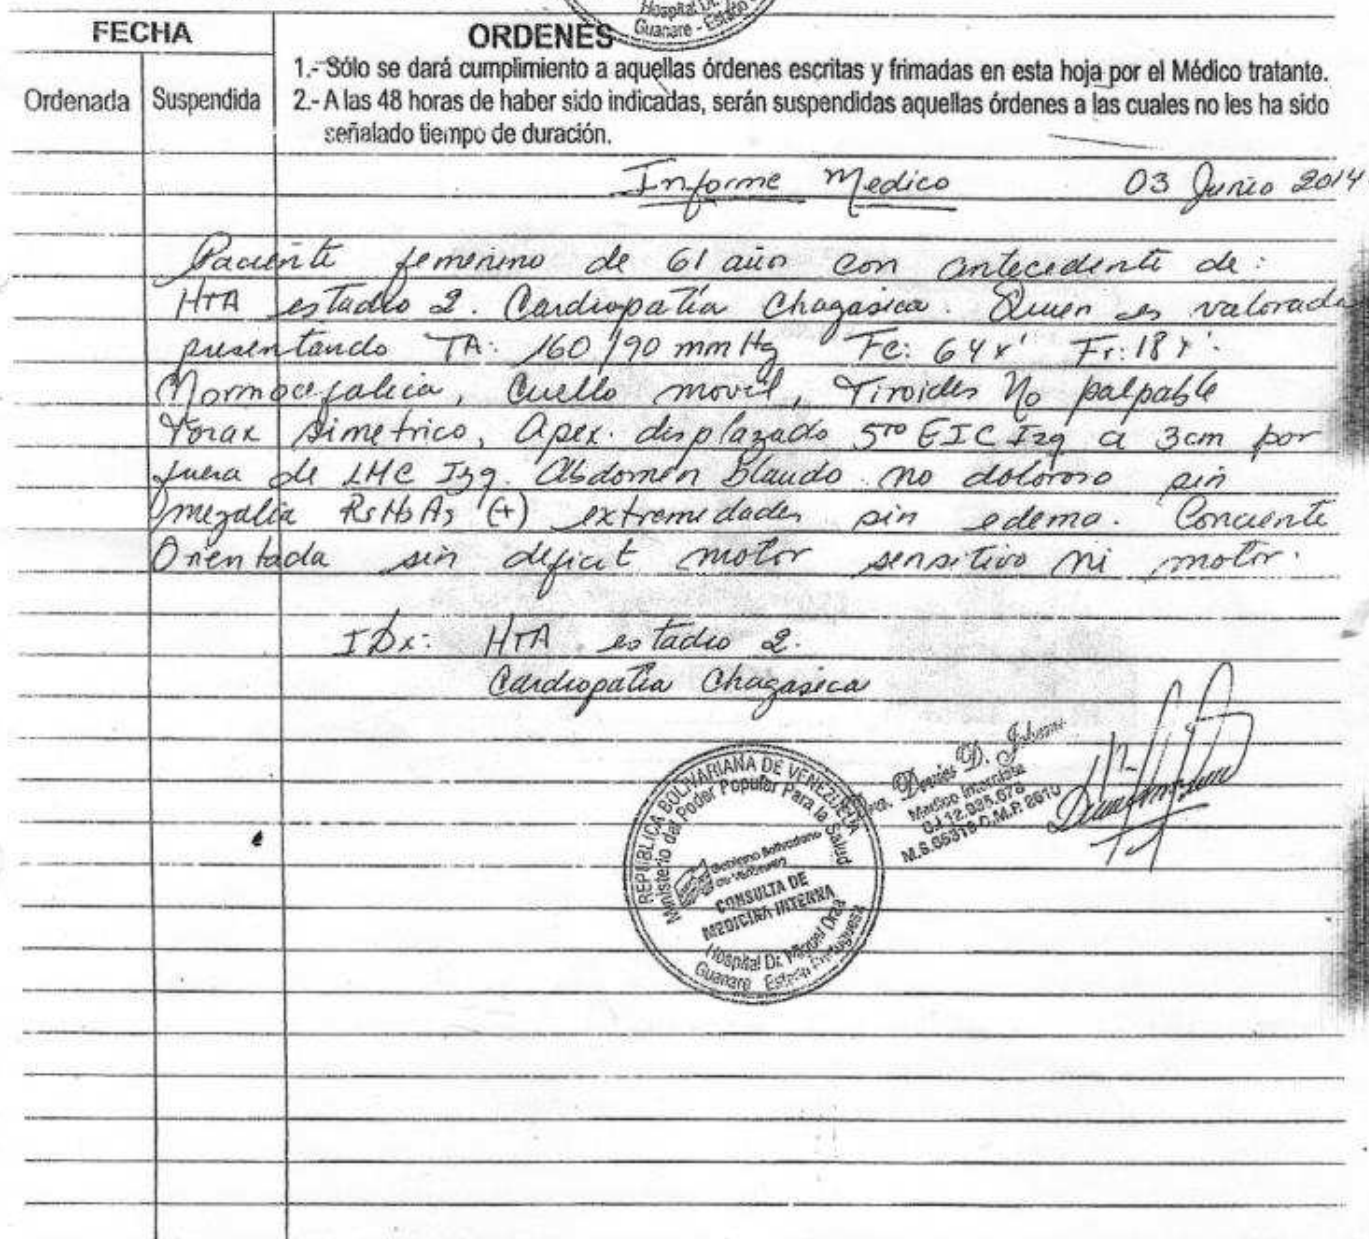 Hospital Dr.
Guanare - Estado
FECHA
ORDENES
1.- Sólo se dará cumplimiento a aquellas órdenes escritas y frimadas en esta hoja por el Médico tratante.
Ordenada Suspendida
2.- A las 48 horas de haber sido indicadas, serán suspendidas aquellas órdenes a las cuales no les ha sido
señalado tiempo de duración.
Informe Medico 03 Junio 2014
Paciente femenino de 61 año con antecedente de:
HTA estadio 2. Cardiopatía Chagasica. Quien es valorada
presentando TA: 160/90 mmHg Fc: 64x' Fr: 18x'.
Normocefalica, Cuello movil, Tiroides No palpable
Torax Simetrico, Apex. desplazado 5to EIC Izq a 3cm por
fuera de LMC Izq. Abdomen blando no doloroso sin
megalia RsHsAs (+) extremidades sin edema. Conciente
Orientada sin deficit motor sensitivo ni motor.
IDx: HTA estadio 2.
Cardiopatía Chagasica
REPUBLICA BOLIVARIANA DE VENEZUELA
Ministerio del Poder Popular Para la Salud
Gobierno Bolivariano
de Venezuela
CONSULTA DE
MEDICINA INTERNA
Hospital Dr. Miguel Oraa
Guanare Estado Portuguesa
Dra.
Medico Internista
C.M.P. 2610